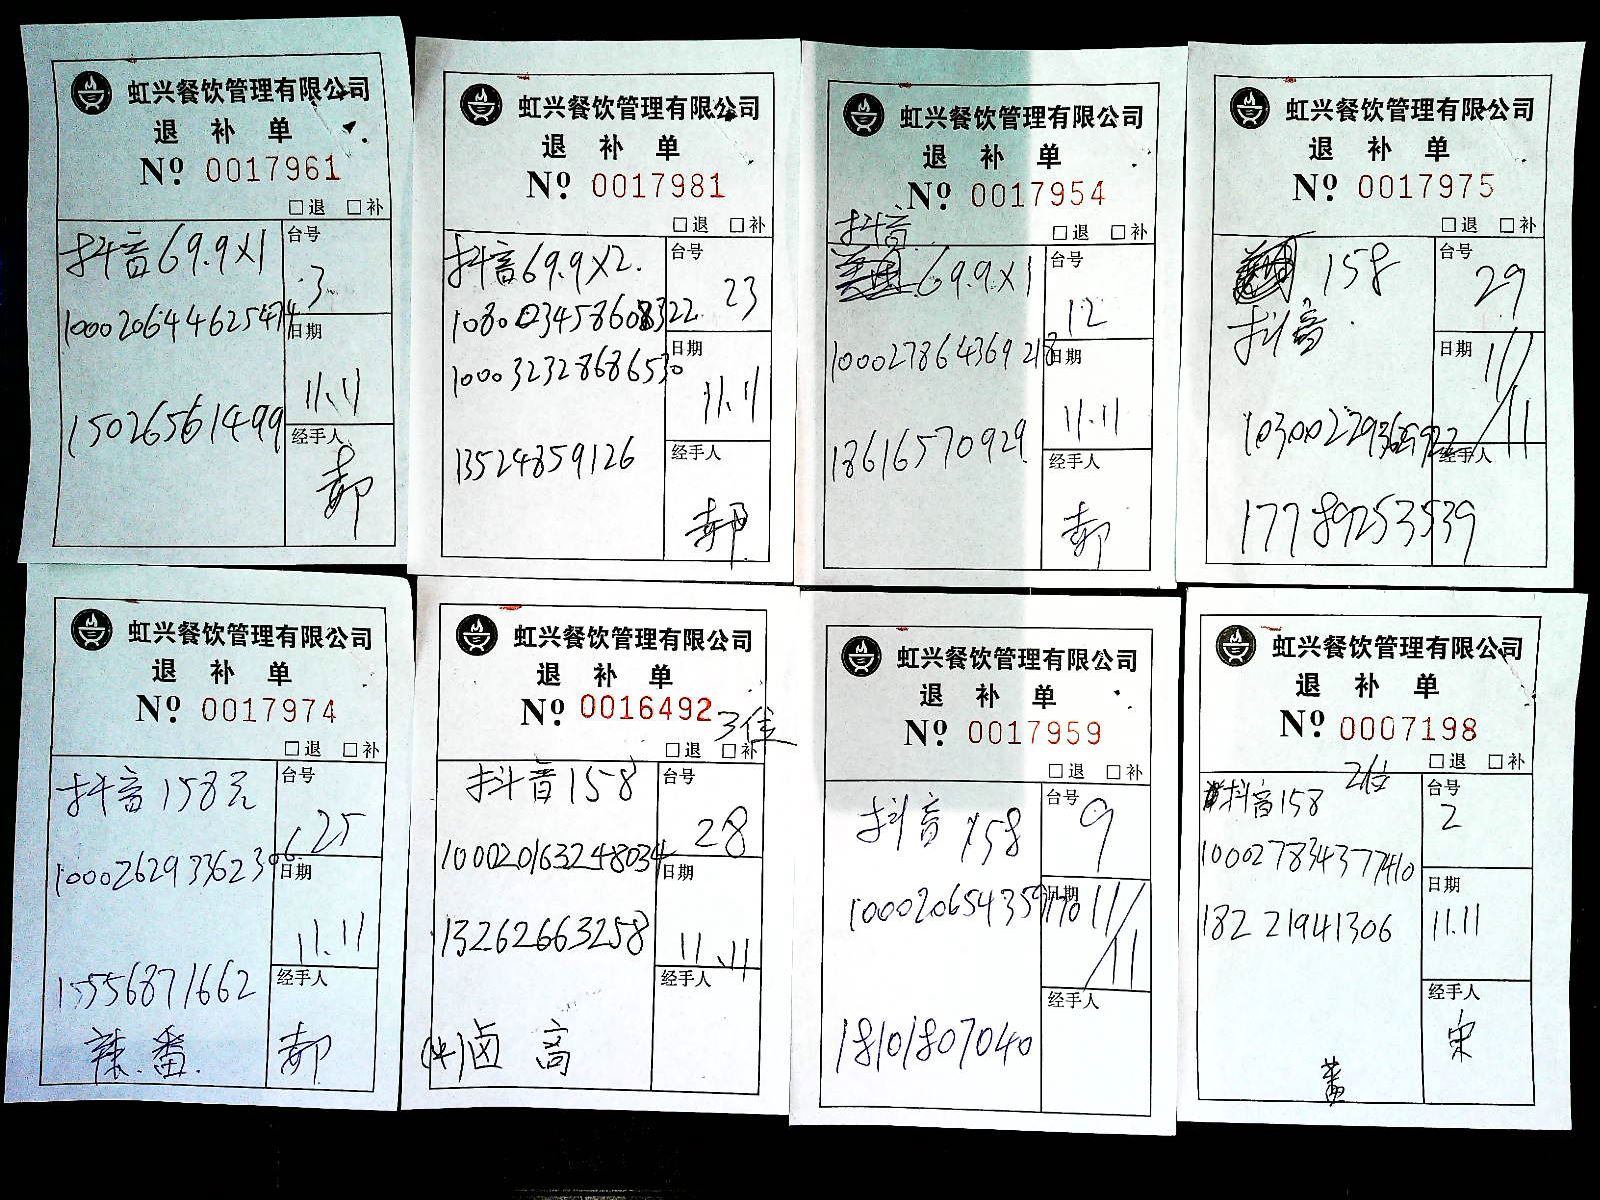 虹兴餐饮管理有限公司
退 补 单
No. 0017961
□退 □补
抖音69.9×1
台号
3
100020644625474
日期
11.11
15026561499
经手人
郝
虹兴餐饮管理有限公司
退 补 单
No. 0017981
□退 □补
抖音69.9×2.
台号
23
日期
100032328686530
11.11
13524859126
经手人
郝
虹兴餐饮管理有限公司
退 补 单
No. 0017954
□退 □补
抖音
69.9×1
台号
12
100027864369218
日期
11.11
18616570929
经手人
郝
虹兴餐饮管理有限公司
退 补 单
No. 0017975
□退 □补
158
台号
29
抖音
日期
11/11
经手人
17789253539
虹兴餐饮管理有限公司
退 补 单
No. 0017974
□退 □补
抖音158元
台号
25
100026293362396
日期
11.11
15556871662
经手人
辣.番.
郝
虹兴餐饮管理有限公司
退 补 单
No. 0016492
3位
□退 □补
抖音158
台号
28
100020163248034
日期
13262663258
11.11
经手人
卤 高
虹兴餐饮管理有限公司
退 补 单
No. 0017959
□退 □补
抖音 158
台号
9
日期
11/11
经手人
18101807040
虹兴餐饮管理有限公司
退 补 单
No. 0007198
□退 □补
2位
抖音158
台号
2
100027834377410
日期
18221941306
11.11
经手人
宋